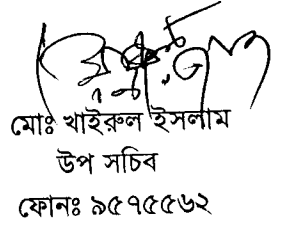 মোঃ খাইরুল ইসলাম
উপ সচিব
ফোনঃ ৯৫৭৫৫৬২